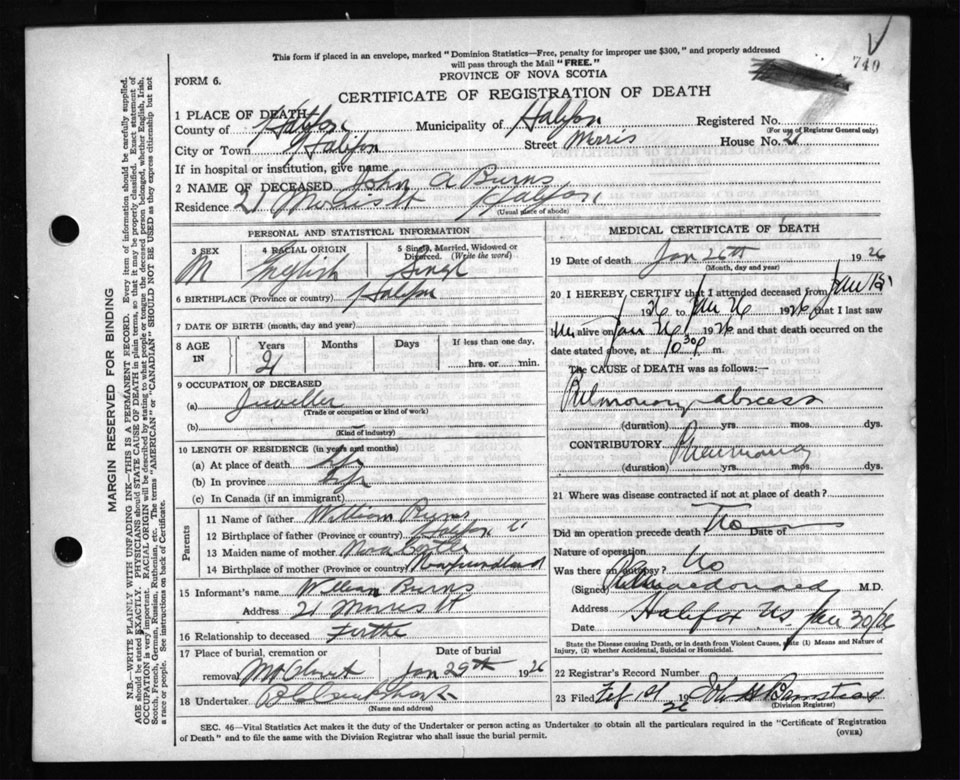 This form if placed in an envelope, marked "Dominion Statistics—Free, penalty for improper use $300," and properly addressed
will pass through the Mail "FREE."
740
FORM 6.
PROVINCE OF NOVA SCOTIA
CERTIFICATE OF REGISTRATION OF DEATH
1 PLACE OF DEATH
County of Halifax Municipality of Halifax Registered No.
(For use of Registrar General only)
City or Town Halifax Street Morris House No. 21
If in hospital or institution, give name
2 NAME OF DECEASED John A Burns
Residence 21 Morris St Halifax
(Usual place of abode)
PERSONAL AND STATISTICAL INFORMATION
3 SEX 4 RACIAL ORIGIN 5 Single, Married, Widowed or Divorced. (Write the word)
M English Singl
6 BIRTHPLACE (Province or country) Halifax
7 DATE OF BIRTH (month, day and year)
8 AGE IN Years Months Days If less than one day,
21 hrs. or min.
9 OCCUPATION OF DECEASED
(a) Juweller
(Trade or occupation or kind of work)
(b)
(Kind of industry)
10 LENGTH OF RESIDENCE (in years and months)
(a) At place of death Life
(b) In province Life
(c) In Canada (if an immigrant)
Parents
11 Name of father William Burns
12 Birthplace of father (Province or country) Halifax
13 Maiden name of mother Nora
14 Birthplace of mother (Province or country) Newfoundland
15 Informant's name William Burns
Address 21 Morris St
16 Relationship to deceased Farthe
17 Place of burial, cremation or Date of burial
removal Mt Olivet Jan 29th 1926
18 Undertaker
(Name and address)
MEDICAL CERTIFICATE OF DEATH
19 Date of death Jan 26th 1926
(Month, day and year)
20 I HEREBY CERTIFY that I attended deceased from Jan 15
1926 to Jan 26 1926 that I last saw
him alive on Jan 26 1926 and that death occurred on the
date stated above, at 10 30 P. m.
The CAUSE of DEATH was as follows:—
Pulmonary abscess
(duration) yrs. mos. dys.
CONTRIBUTORY Pneumonia
(duration) yrs. mos. dys.
21 Where was disease contracted if not at place of death?
Did an operation precede death No Date of
Nature of operation
Was there an autopsy? No
(Signed) Macdonald M.D.
Address Halifax NS
Date Jan 30/26
State the Disease causing Death, or in death from Violent Causes, state (1) Means and Nature of
Injury, (2) whether Accidental, Suicidal or Homicidal.
22 Registrar's Record Number
23 Filed Feb 1st 1926
(Division Registrar)
SEC. 46—Vital Statistics Act makes it the duty of the Undertaker or person acting as Undertaker to obtain all the particulars required in the "Certificate of Registration
of Death" and to file the same with the Division Registrar who shall issue the burial permit.
(OVER)
MARGIN RESERVED FOR BINDING
N.B.—WRITE PLAINLY WITH UNFADING INK—THIS IS A PERMANENT RECORD. Every item of information should be carefully supplied.
AGE should be stated EXACTLY. PHYSICIANS should STATE CAUSE OF DEATH in plain terms, so that it may be properly classified. Exact statement of
OCCUPATION is very important. RACIAL ORIGIN will be described by stating to what people or tongue the deceased person belonged, whether English, Irish,
Scotch, French, German, Russian, Ruthenian, etc. The terms "AMERICAN" or "CANADIAN" SHOULD NOT BE USED as they express citizenship but not
a race or people. See instructions on back of Certificate.